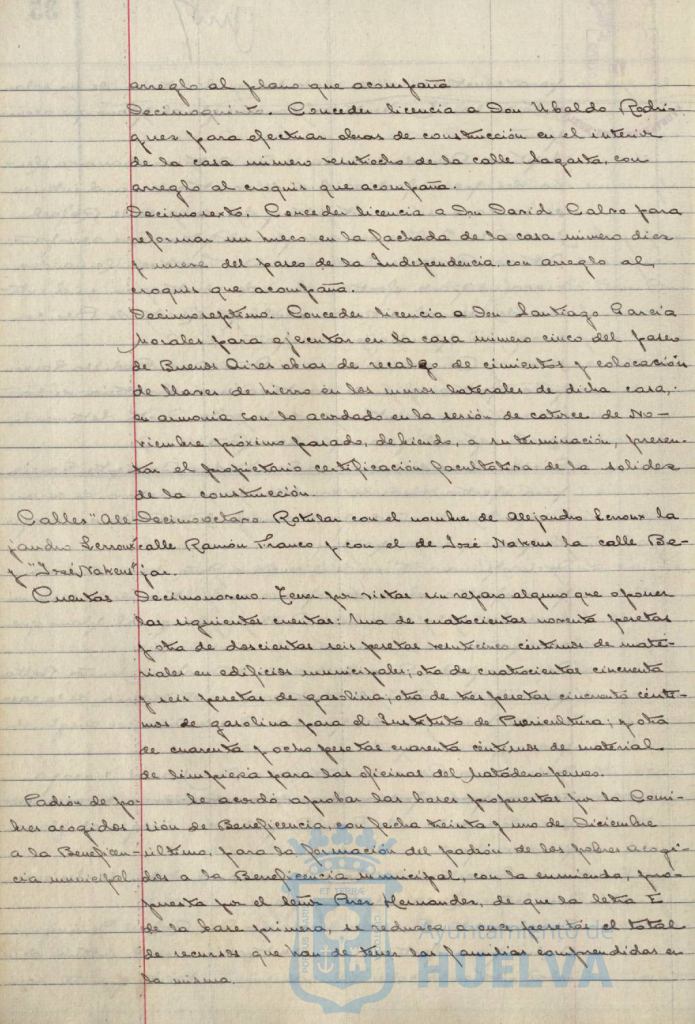 arreglo al plano que acompaña
Decimoquinto. Conceder licencia a Don Ubaldo Rodri-
guez para efectuar obras de construcción en el interior
de la casa número veintiocho de la calle Sagasta, con
arreglo al croquis que acompaña.
Decimosexto. Conceder licencia a Don David Calvo para
reformar un hueco en la fachada de la casa número diez
y nueve del paseo de la Independencia con arreglo al
croquis que acompaña.
Decimoseptimo. Conceder licencia a Don Santiago García
Morales para ejecutar en la casa número cinco del paseo
de Buenos Aires obras de recalgo de cimientos y colocación
de llaves de hierro en los muros laterales de dicha casa,
en armonía con lo acordado en la sesión de catorce de No-
viembre próximo pasado, debiendo, a su terminación, presen-
tar el propietario certificación facultativa de la solidez
de la construcción
Calles "Ale-
jandro Lerroux"
y "José Nakens"
Decimoctavo. Rotular con el nombre de Alejandro Lerroux la
calle Ramón Franco y con el de José Nakens la calle Be-
jar.
Cuentas
Decimonoveno. Tener por vistas sin reparo alguno que oponer
las siguientes cuentas: Una de cuatrocientas noventa pesetas
y otra de doscientas seis pesetas veinticinco céntimos de mate-
riales en edificios municipales; otra de cuatrocientas cincuenta
y seis pesetas de gasolina; otra de tres pesetas cincuenta cénti-
mos de gasolina para el Instituto de Puericultura; y otra
de cuarenta y ocho pesetas cuarenta céntimos de material
de limpieza para las oficinas del Matadero
Padrón de po-
bres acogidos
a la Beneficen-
cia municipal
Se acordó aprobar las bases propuestas por la Comi-
sión de Beneficencia, con fecha treinta y uno de Diciembre
último, para la formación del padrón de los pobres acogi-
dos a la Beneficencia municipal, con la enmienda, pro-
puesta por el señor Perez Hernandez, de que la letra E
de la base primera, se reduzca a pesetas el total
de recursos que han de tener las familias comprendidas en
la misma.
Ayuntamiento de
HUELVA